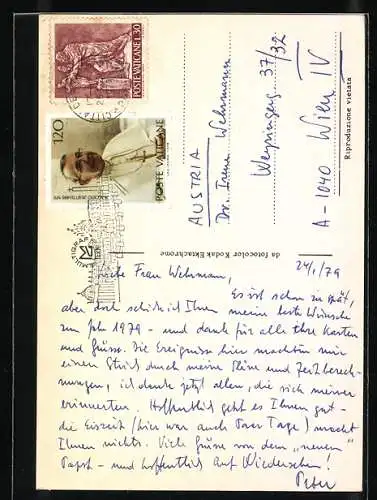 POSTE VATICANE L.30
120
POSTE VATICANE
AUSTRIA
Dr. Irene Wehrmann
Weyringerg. 37/32
A-1040 Wien IV
Riproduzione vietata
da fotocolor Kodak Ektachrome
24/1/79
Liebe Frau Wehrmann,
Es ist schon zu spät,
aber doch schick ich Ihnen meine beste Wünsche
zum Jahr 1979 - und dank für alle Ihre Karten
und Grüsse. Die Ereignisse hier machten mir
einen Strich durch meine Pläne und Zeitberech-
nungen, ich danke jetzt allen, die sich meiner
erinnerten. Hoffentlich geht es Ihnen gut -
die Eiszeit (hier war auch Paar Tage) macht
Ihnen nichts. Viele Grüsse von dem „neuen"
Papst - und hoffentlich Auf Wiedersehen!
Peter